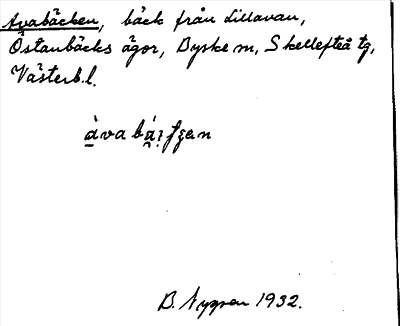 Avabäcken, bäck från Lillavan,
Östanbäcks ägor, Byske sn, Skellefteå tg,
Västerb.l.
B. Nygren 1932.